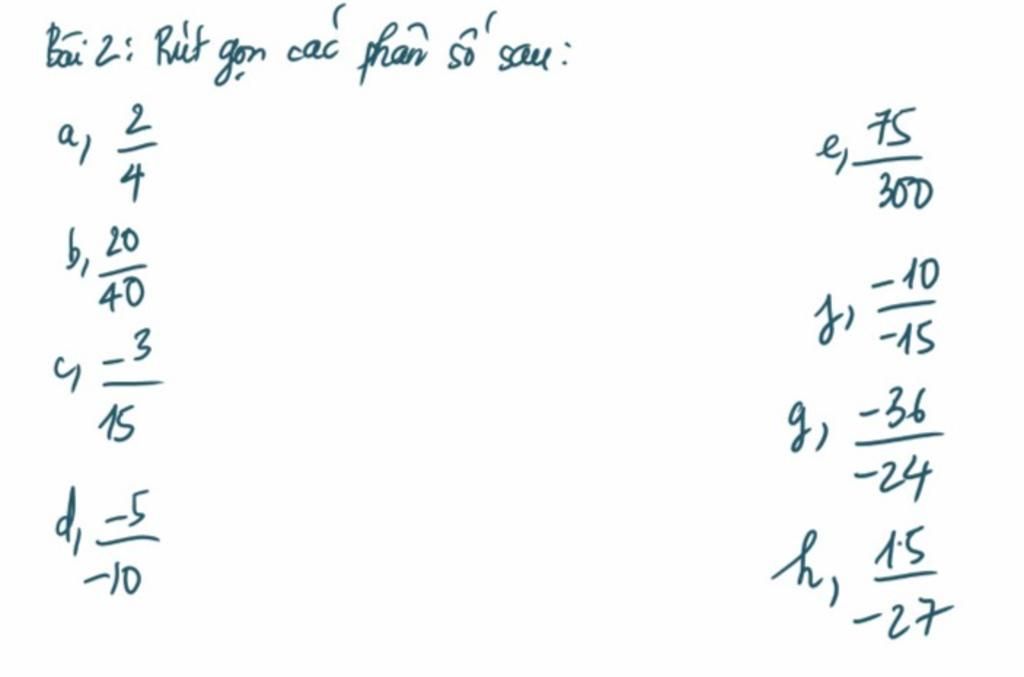 Bài 2: Rút gọn các phân số sau:
a, 2/4
b, 20/40
c, -3/15
d, -5/-10
e, 75/300
f, -10/-15
g, -36/-24
h, 1.5/-27